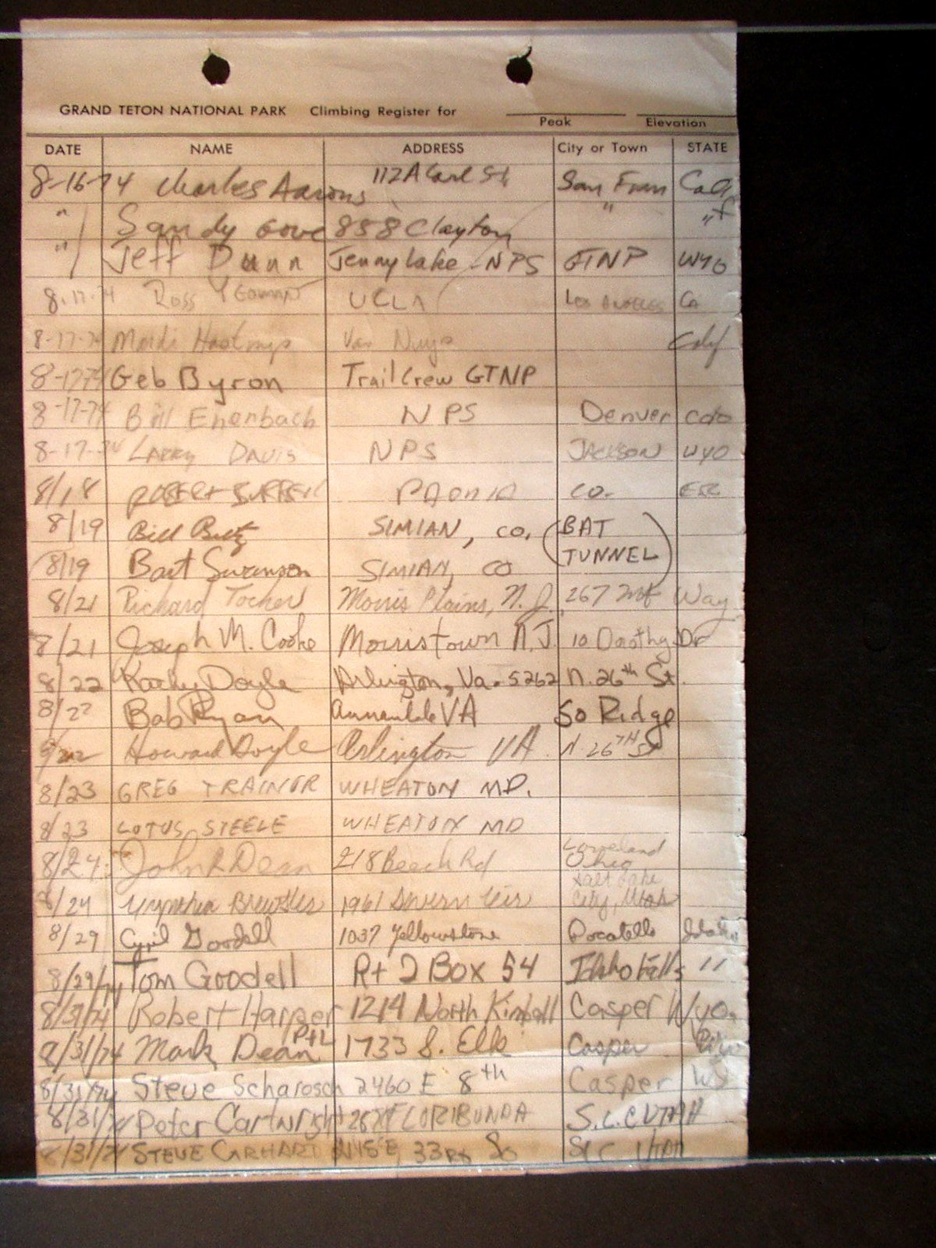 GRAND TETON NATIONAL PARK Climbing Register for
Peak Elevation
DATE NAME ADDRESS City or Town STATE
8-16-74 Charles Aarons 112A Carl St San Fran Calif
" Sandy Gove 858 Clayton " "
" Jeff Dunn Jenny Lake - NPS GTNP WYO
8-17-74 Ross Yeoman UCLA Los Angeles Ca
8-17-74 Van Nuys Calif
8-17-74 Geb Byron Trail Crew GTNP
8-17-74 Bill Ehenbach NPS Denver Colo
8-17-74 LARRY DAVIS NPS JACKSON WYO
8/18 ROBERT PAONIA CO.
8/19 Bill SIMIAN, CO. (BAT
8/19 Bart Swanson SIMIAN, CO TUNNEL)
8/21 Richard Tocher Morris Plains, N.J. 267 Way
8/21 Joseph M. Cooke Morristown N.J. 10 Dorothy Dr
8/22 Kathy Doyle Arlington, Va. 5262 N. 26th St.
8/22 Bob Ryan Annandale VA So Ridge
8/22 Howard Doyle Arlington VA N 26TH St
8/23 GREG TRAINOR WHEATON MD.
8/23 LOTUS STEELE WHEATON MD
8/24 John R Dean 218 Beech Rd Loveland Ohio
8/24 Brewster 1961 Salt Lake City, Utah
8/29 Cyril Goodell 1037 Yellowstone Pocatello Idaho
8/29/74 Tom Goodell Rt 2 Box 54 Idaho Falls "
8/31/74 Robert Harper 1214 North Kimball Casper Wyo.
8/31/74 Mark Dean 1733 S. Elk Casper
8/31/74 Steve Scharosch 2460 E 8th Casper Wy
8/31/74 Peter Cartwright FLORIBUNDA S.L.C UTAH
8/31/74 STEVE CARHART 33rd So SLC UTAH